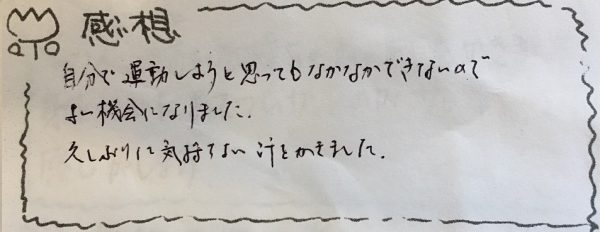 感想
自分で運動しようと思ってもなかなかできないので
よい機会になりました.
久しぶりに気持ちない汗をかきました.